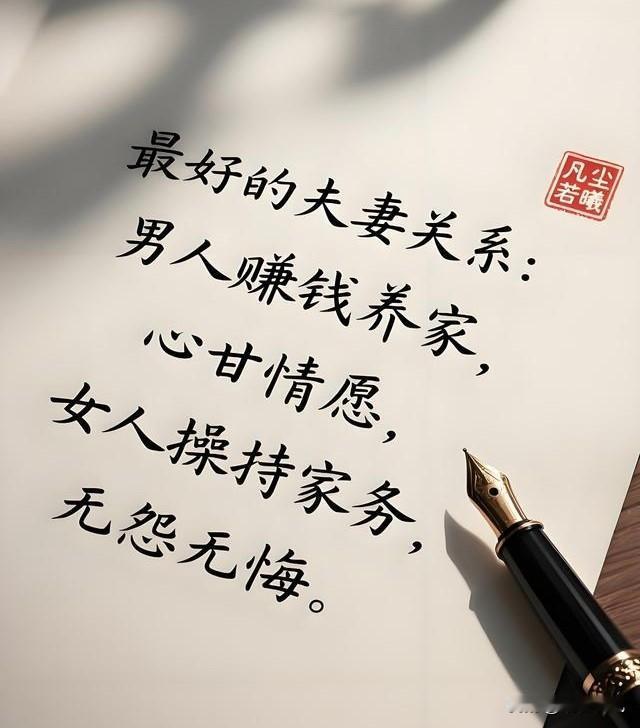 最好的夫妻关系：
男人赚钱养家，
心甘情愿，
女人操持家务，
无怨无悔。
凡尘
若曦